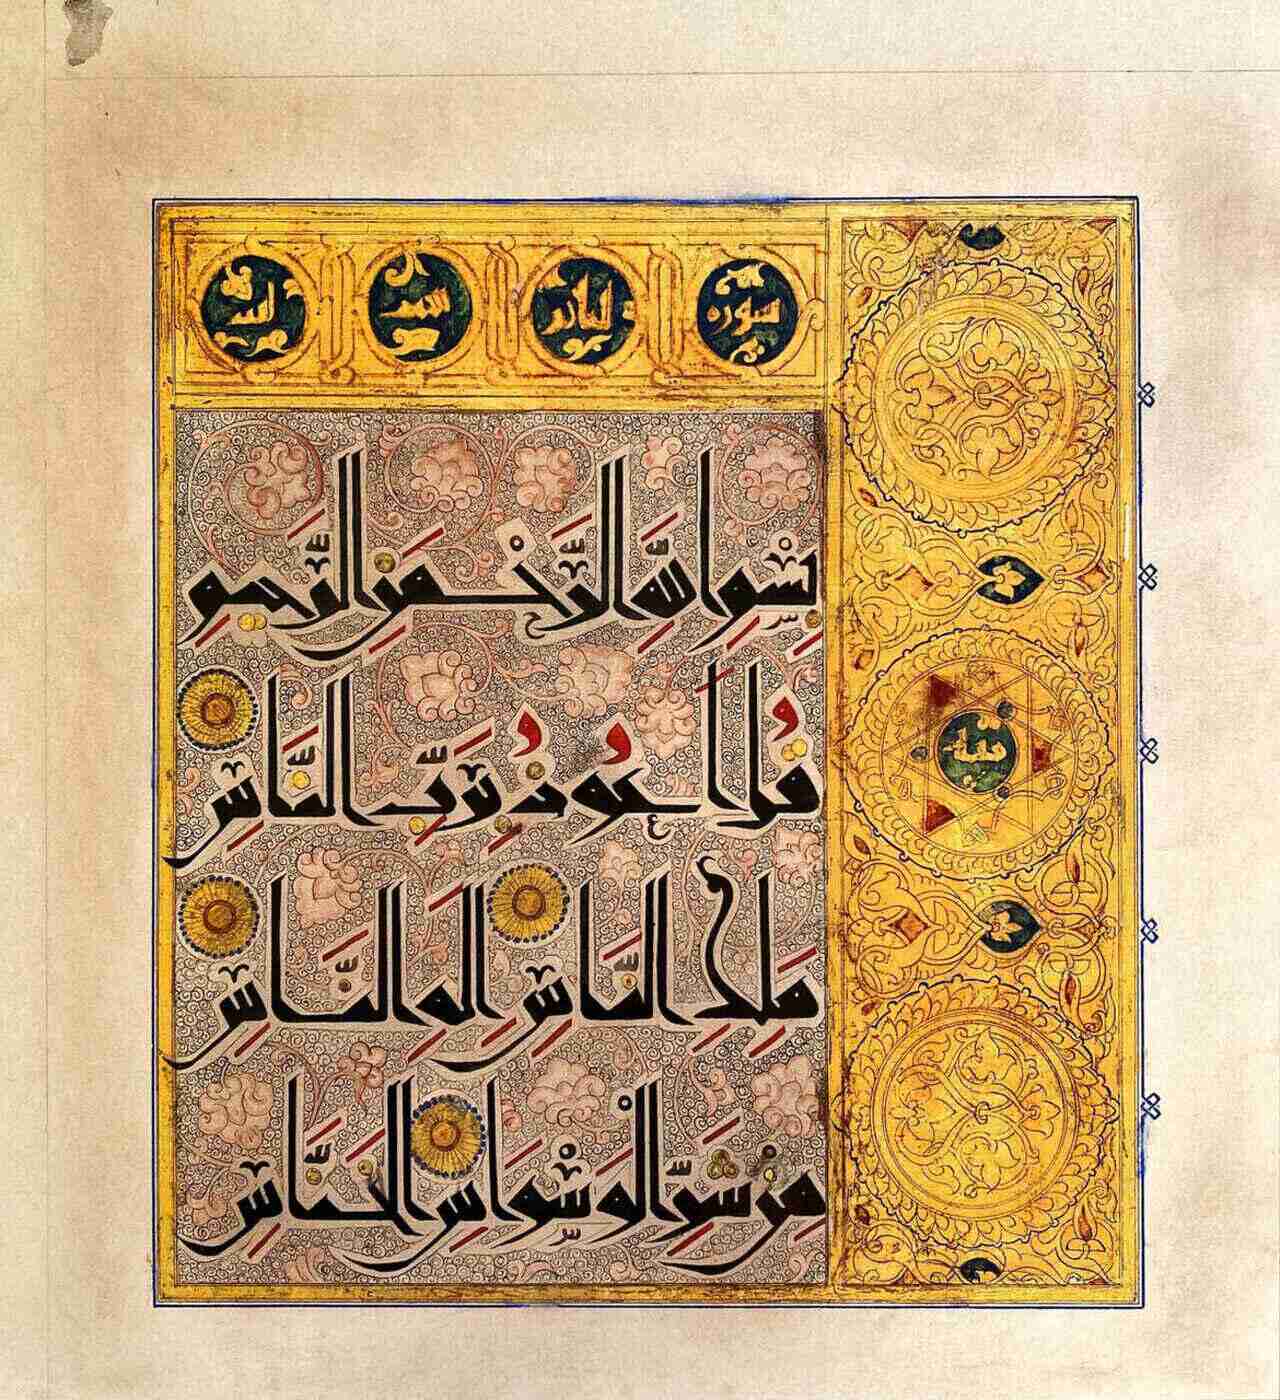 سورة الناس
بِسْمِ اللَّهِ الرَّحْمَنِ الرَّحِيمِ
قُلْ أَعُوذُ بِرَبِّ النَّاسِ
مَلِكِ النَّاسِ إِلَهِ النَّاسِ
مِنْ شَرِّ الْوَسْوَاسِ الْخَنَّاسِ